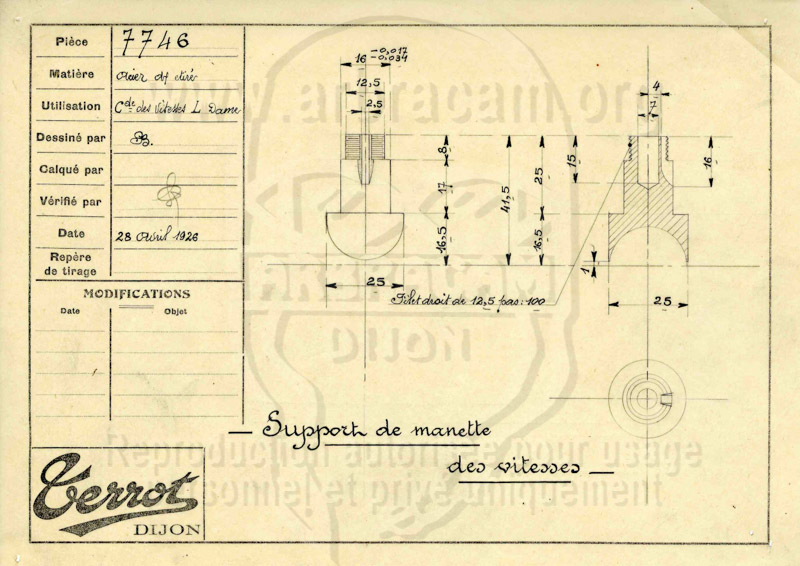 Pièce 7746
Matière Acier df étiré
Utilisation Cde des vitesses L Dame
Dessiné par B.
Calqué par
Vérifié par
Date 28 Avril 1926
Repère
de tirage
MODIFICATIONS
Date Objet
Terrot
DIJON
16 -0,017 -0,034
12,5
2,5
8
17
16,5
25
41,5
25
16,5
4
7
15
16
1
25
Filet droit de 12,5 pas: 100
Support de manette
des vitesses
www.amtracam.org
DIJON
Reproduction autorisée pour usage
personnel et privé uniquement